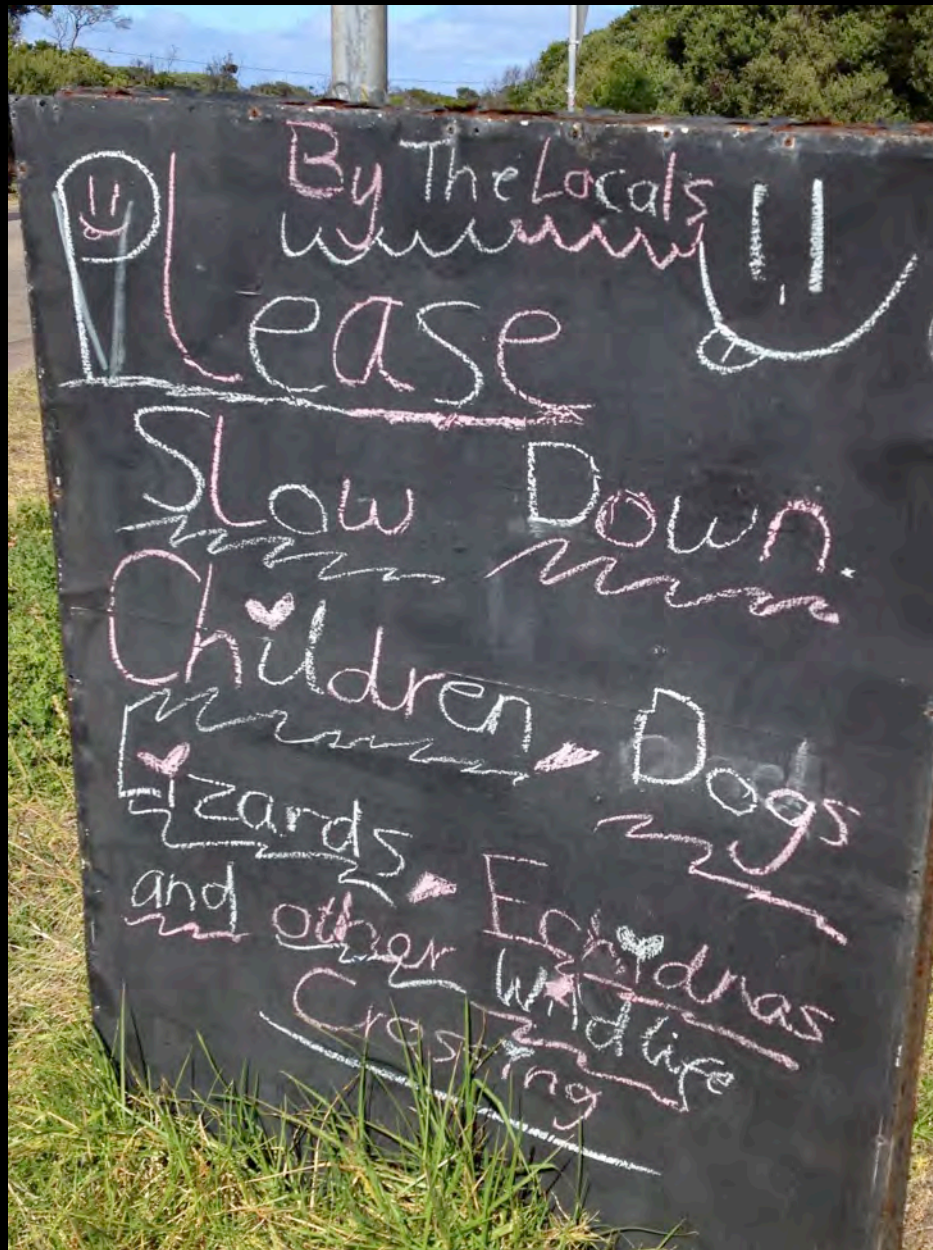 By The Locals
Please
Slow Down.
Children Dogs
Lizards Echidnas
and other Wildlife
Crossing